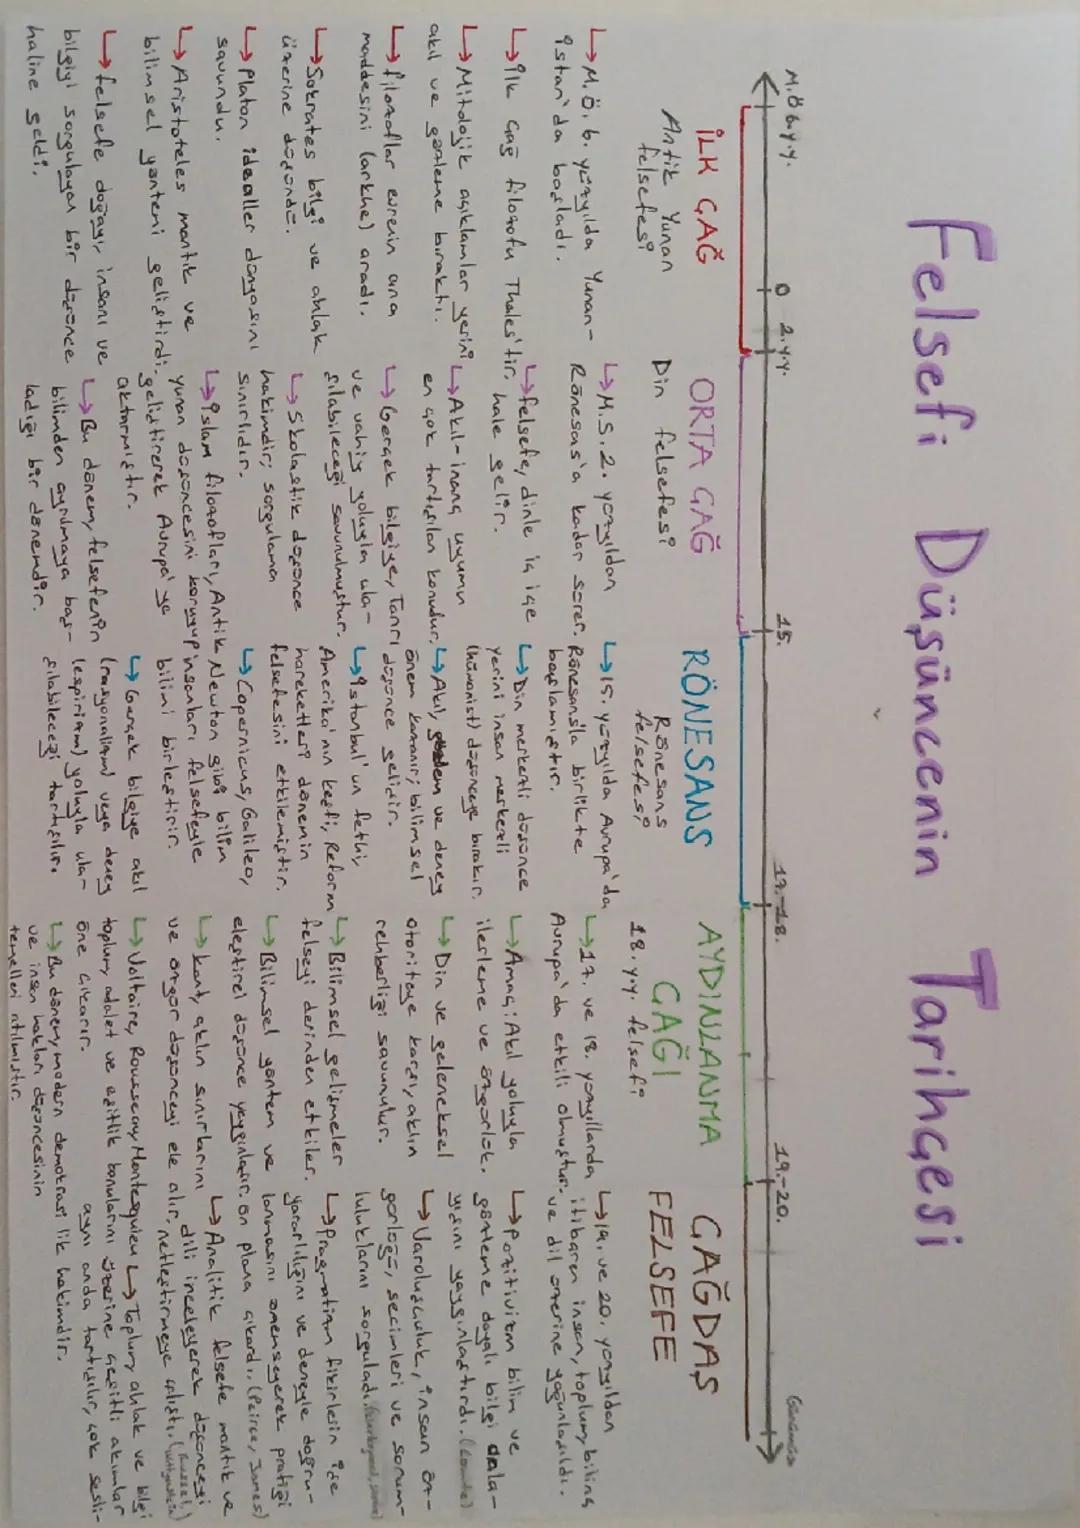 Felsefi Düşüncenin Tarihçesi
M.Ö 6.y.y.
0
2.y.y.
15.
17.-18.
19.-20.
Günümüz
İLK ÇAĞ
Antik Yunan
felsefesi
↳ M.Ö. 6. yüzyılda Yunan-
istan'da başladı.
↳ İlk Çağ filozofu Thales'tir.
↳ Mitolojik açıklamlar yerini
akıl ve gözleme bıraktı.
↳ filozoflar evrenin ana
maddesini (arkhe) aradı.
↳ Sokrates bilgi ve ahlak
üzerine düşündü.
↳ Platon idealler dünyasını
savundu.
↳ Aristoteles mantık ve
bilimsel yöntemi geliştirdi.
↳ felsefe doğayı, insanı ve
bilgiyi sorgulayan bir düşünce
haline geldi.
ORTA ÇAĞ
Din felsefesi
↳ M.S. 2. yüzyıldan
Rönesas'a kadar sürer.
↳ felsefe, dinle iç içe
hale gelir.
↳ Akıl-inanç uyumun
en çok tartışılan konudur.
↳ Gerçek bilgiye, Tanrı
ve vahiy yoluyla ula-
şılabileceği savunulmuştur.
↳ Skolastik düşünce
hakimdir; sorgulama
sınırlıdır.
↳ İslam filozofları, Antik
yunan düşüncesini koruyup
geliştirerek Avrupa'ya
aktarmıştır.
↳ Bu dönem, felsefenin
bilimden ayrılmaya baş-
ladığı bir dönemdir.
RÖNESANS
Rönesans
felsefesi
↳ 15. yüzyılda Avrupa'da
Rönesansla birlikte
başlamıştır.
↳ Din merkezli düşünce
yerini insan merkezli
(hümanist) düşünceye bırakır.
↳ Akıl, ve deney
önem kazanır; bilimsel
düşünce gelişir.
↳ İstanbul'un fethi,
Amerika'nın keşfi, Reform
hareketleri dönemin
felsefesini etkilemiştir.
↳ Copernicus, Galileo,
Newton gibi bilim
insanları felsefeyle
bilimi birleştirir.
↳ Gerçek bilgiye akıl
(rasyonalizm) veya deney
(espirizm) yoluyla ula-
şılabileceği tartışılır.
AYDINLANMA
ÇAĞI
18. yy. felsefi
↳ 17. ve 18. yüzyıllarda
Avrupa'da etkili olmuştur.
↳ Amaç: Akıl yoluyla
ilerleme ve özgürlük.
↳ Din ve geleneksel
otoriteye karşı, aklın
rehberliği savunulur.
↳ Bilimsel gelişmeler
felseyi derinden etkiler.
↳ Bilimsel yöntem ve
eleştirel düşünce yaygınlaşır.
↳ Kant, aklın sınırlarını
ve özgür düşünceyi ele alır,
↳ Voltaire, Rousseau, Montesquieu
toplum, adalet ve eşitlik konularını
öne çıkarır.
↳ Bu dönem, modern demokrasi
ve insan hakları düşüncesinin
temelleri atılmıştır.
ÇAĞDAŞ
FELSEFE
↳ 19. ve 20. yüzyıldan
itibaren insan, toplum, bilinç
ve dil üzerine yoğunlaşıldı.
↳ Pozitivizm bilim ve
gözleme dayalı bilgi anla-
yışını yaygınlaştırdı. (Comte)
↳ Varoluşçuluk, insan öz-
gürlüğü, seçimleri ve sorum-
luluklarını sorguladı.
↳ Pragmatizm fikirlerin işe
yararlılığını ve deneyle doğru-
lanmasını önemseyerek pratiği
ön plana çıkardı. (Peirce, James)
↳ Analitik felsefe mantık ve
dili inceleyerek düşünceyi
netleştirmeye çalıştı. (Russel, Wittgenstein)
↳ Toplum, ahlak ve bilgi
üzerine çeşitli akımlar
aynı anda tartışılır, çok sesli-
lik hakimdir.